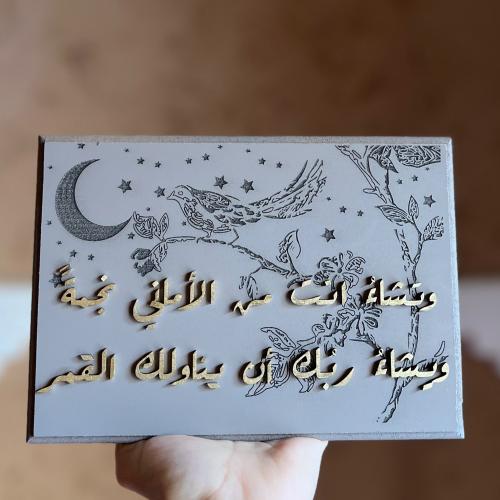 وتشاءُ انتَ من الأماني نجمةً
ويشاءُ ربّك أن يناولك القمر